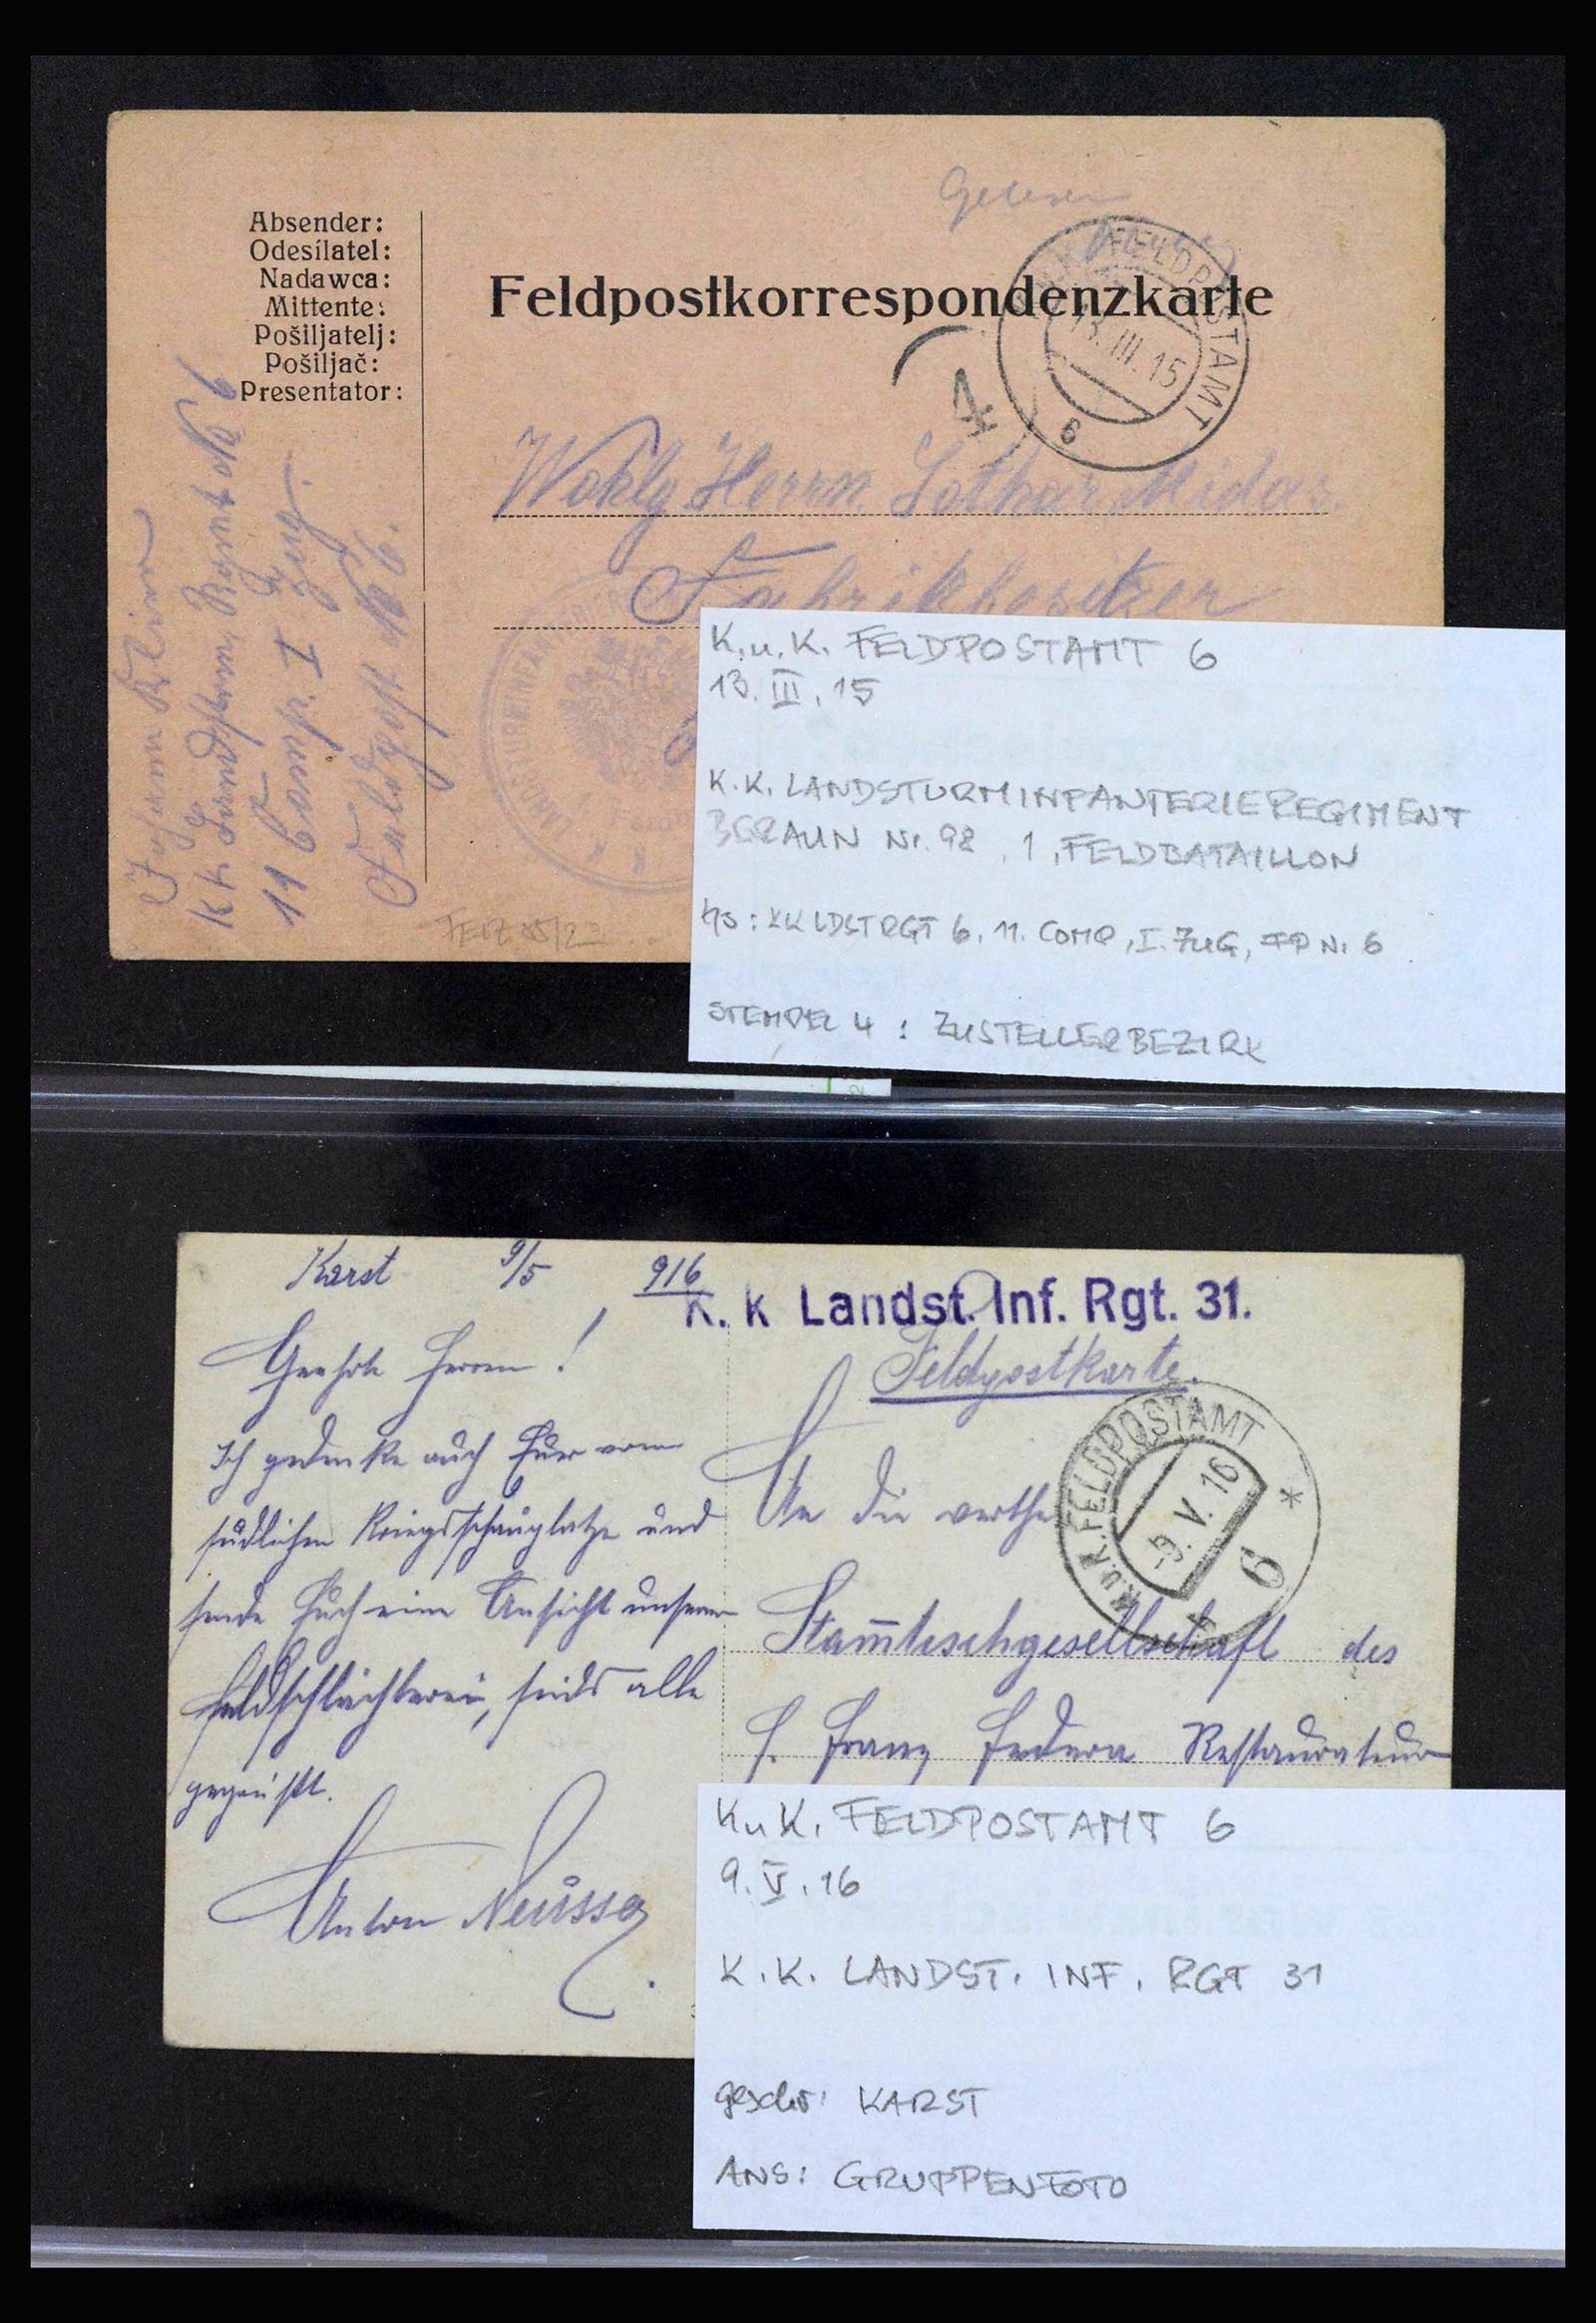 Gelesen
Absender:
Odesílatel:
Nadawca:
Mittente:
Pošiljatelj:
Pošiljač:
Presentator:
Feldpostkorrespondenzkarte
FELDPOSTAMT
13. III. 15
6
4
Wohlg Herrn Lothar Midas
Fabrikbesitzer
Johann
K K Landsturm Rgmt No 6
11 Comp. I Zug.
Feldpost No 6.
K.K. LANDSTURMINFANTERIE
K.u.K. FELDPOSTAMT 6
13. III. 15
K.K. LANDSTURMINFANTERIEREGIMENT
BERAUN Nr. 98, 1. FELDBATAILLON
hs: KK LDSTRGT 6, 11. COMP, I. ZUG, FP Nr 6
STEMPEL 4: ZUSTELLERBEZIRK
Karst 9/5 916
K. k Landst. Inf. Rgt. 31.
Feldpostkarte.
K.u.K. FELDPOSTAMT
-9. V. 16
6
Geehrte Herren!
Ich gedenke auch Euer vom
südlichen Kriegsschauplatze und
sende Euch eine Ansicht unserer
Feldschlächterei, seids alle
gegrüßt.
Anton
An die werthe
Stam̅tischgesellschaft des
H. Franz Restaurateur
K.u.K. FELDPOSTAMT 6
9. V. 16
K.K. LANDST. INF. RGT 31
geschr: KARST
ANS: GRUPPENFOTO